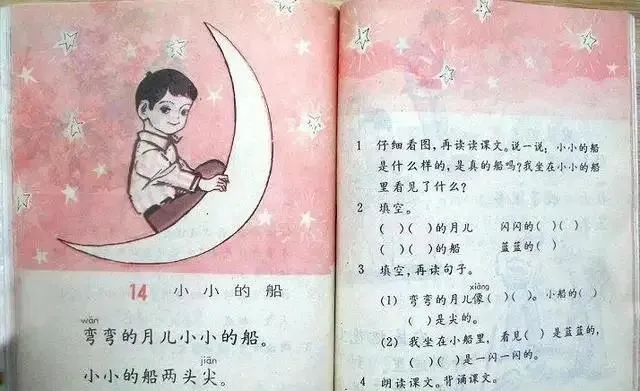 14 小小的船
wān
弯弯的月儿小小的船。
jiān
小小的船两头尖。
1 仔细看图,再读读课文。说一说:小小的船
是什么样的,是真的船吗?我坐在小小的船
里看见了什么?
2 填空。
( )( )的月儿 闪闪的( )( )
( )( )的船 蓝蓝的( )
3 填空,再读句子。
xiàng
(1) 弯弯的月儿像( )( )。小船的( )
( )是尖的。
(2) 我坐在小船里,看见( )是蓝蓝的,
( )( )是一闪一闪的。
4 朗读课文。背诵课文。